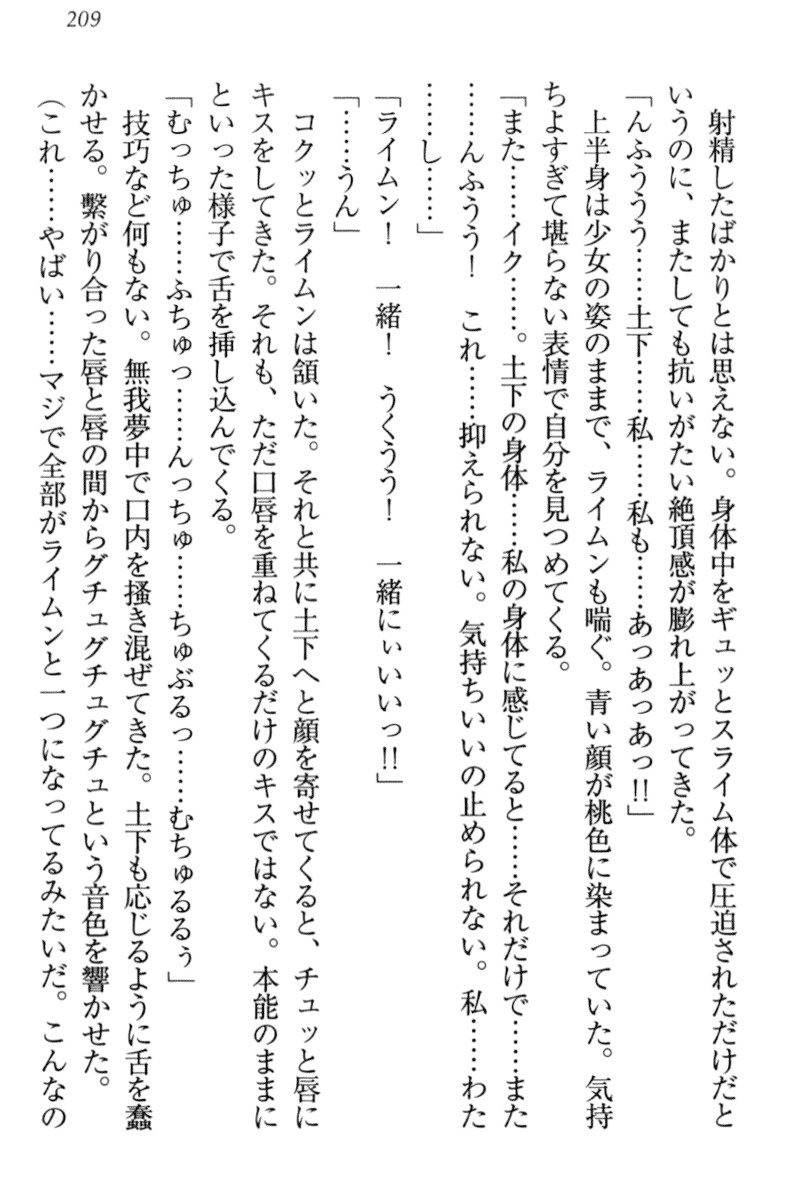 209
射精したばかりとは思えない。身体中をギュッとスライム体で圧迫されただけだと
いうのに、またしても抗いがたい絶頂感が膨れ上がってきた。
「んふううう……土下……私……私も……あっあっあっ!!」
上半身は少女の姿のままで、ライムンも喘ぐ。青い顔が桃色に染まっていた。気持
ちよすぎて堪らない表情で自分を見つめてくる。
「また……イク……。土下の身体……私の身体に感じてると……それだけで……また
……んふうう！　これ……抑えられない。気持ちいいの止められない。私……わた
……し……」
「ライムン！　一緒！　うくうう！　一緒にぃいいっ!!」
「……うん」
コクッとライムンは頷いた。それと共に土下へと顔を寄せてくると、チュッと唇に
キスをしてきた。それも、ただ口唇を重ねてくるだけのキスではない。本能のままに
といった様子で舌を挿し込んでくる。
「むっちゅ……ふちゅっ……んっちゅ……ちゅぶるっ……むちゅるるぅ」
技巧など何もない。無我夢中で口内を掻き混ぜてきた。土下も応じるように舌を蠢
かせる。繫がり合った唇と唇の間からグチュグチュグチュという音色を響かせた。
（これ……やばい……マジで全部がライムンと一つになってるみたいだ。こんなの